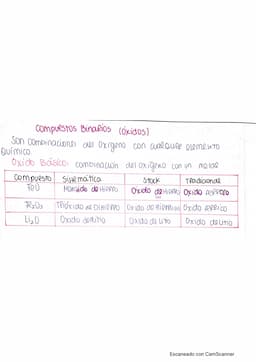 Compuestos Binarios (óxidos)
Son combinaciones del oxigeno con cualquier elemento
químico.
Oxido Básico: combinación del oxigeno con un metal
Compuesto Sistemática Stock Tradicional
FeO Monóxido de Hierro Oxido de Hierro Oxido ferroso
Fe₂O₃ Trióxido de DiHierro Oxido de Hierro Oxido ferrico
Li₂O Oxido de litio Oxido de litio Oxido de litio
Escaneado con CamScanner